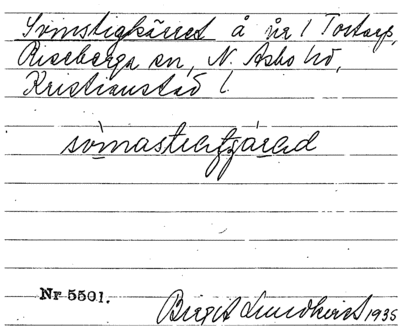 Svinstigkärret å nr 1 Tostarp,
Riseberga sn, N. Åsbo hd,
Kristianstad l.
Nr 5501.
Birgit Lundkvist 1935